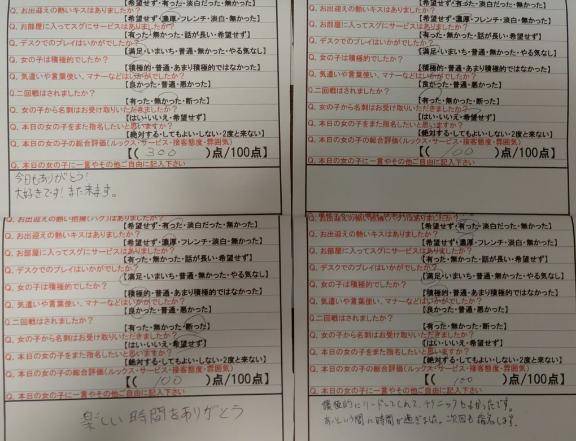 【希望せず・有った・淡白だった・無かった】
Q. お出迎えの熱いキスはありましたか?
【希望せず・濃厚・フレンチ・淡白・無かった】
Q. お部屋に入ってスグにサービスはありましたか?
【有った・無かった・話が長い・希望せず】
Q. デスクでのプレイはいかがでしたか?
【満足・いまいち・普通・無かった・やる気なし】
Q. 女の子は積極的でしたか?
【積極的・普通・あまり積極的ではなかった】
Q. 気遣いや言葉使い、マナーなどはいかがでしたか?
【良かった・普通・悪かった】
Q.二回戦はされましたか?
【有った・無かった・断った】
Q. 女の子から名刺はお受け取りいただきましたか?
【はい・いいえ・希望せず】
Q. 本日の女の子をまた指名したいと思いますか?
【絶対する・してもよい・しない・2度と来ない】
Q. 本日の女の子の総合評価(ルックス・サービス・接客態度・雰囲気)
【( 300 )点/100点】
Q. 本日の女の子に一言やその他ご自由に記入下さい
今日もありがとう!
大好きです! また来ます。
【希望せず・有った・淡白だった・無かった】
Q. お出迎えの熱いキスはありましたか?
【希望せず・濃厚・フレンチ・淡白・無かった】
Q. お部屋に入ってスグにサービスはありましたか?
【有った・無かった・話が長い・希望せず】
Q. デスクでのプレイはいかがでしたか?
【満足・いまいち・普通・無かった・やる気なし】
Q. 女の子は積極的でしたか?
【積極的・普通・あまり積極的ではなかった】
Q. 気遣いや言葉使い、マナーなどはいかがでしたか?
【良かった・普通・悪かった】
Q.二回戦はされましたか?
【有った・無かった・断った】
Q. 女の子から名刺はお受け取りいただきましたか?
【はい・いいえ・希望せず】
Q. 本日の女の子をまた指名したいと思いますか?
【絶対する・してもよい・しない・2度と来ない】
Q. 本日の女の子の総合評価(ルックス・サービス・接客態度・雰囲気)
【( 100 )点/100点】
Q. 本日の女の子に一言やその他ご自由に記入下さい
【希望せず・有った・淡白だった・無かった】
Q. お出迎えの熱いキスはありましたか?
【希望せず・濃厚・フレンチ・淡白・無かった】
Q. お部屋に入ってスグにサービスはありましたか?
【有った・無かった・話が長い・希望せず】
Q. デスクでのプレイはいかがでしたか?
【満足・いまいち・普通・無かった・やる気なし】
Q. 女の子は積極的でしたか?
【積極的・普通・あまり積極的ではなかった】
Q. 気遣いや言葉使い、マナーなどはいかがでしたか?
【良かった・普通・悪かった】
Q.二回戦はされましたか?
【有った・無かった・断った】
Q. 女の子から名刺はお受け取りいただきましたか?
【はい・いいえ・希望せず】
Q. 本日の女の子をまた指名したいと思いますか?
【絶対する・してもよい・しない・2度と来ない】
Q. 本日の女の子の総合評価(ルックス・サービス・接客態度・雰囲気)
【( 100 )点/100点】
Q. 本日の女の子に一言やその他ご自由に記入下さい
楽しい時間をありがとう
【希望せず・有った・淡白だった・無かった】
Q. お出迎えの熱いキスはありましたか?
【希望せず・濃厚・フレンチ・淡白・無かった】
Q. お部屋に入ってスグにサービスはありましたか?
【有った・無かった・話が長い・希望せず】
Q. デスクでのプレイはいかがでしたか?
【満足・いまいち・普通・無かった・やる気なし】
Q. 女の子は積極的でしたか?
【積極的・普通・あまり積極的ではなかった】
Q. 気遣いや言葉使い、マナーなどはいかがでしたか?
【良かった・普通・悪かった】
Q.二回戦はされましたか?
【有った・無かった・断った】
Q. 女の子から名刺はお受け取りいただきましたか?
【はい・いいえ・希望せず】
Q. 本日の女の子をまた指名したいと思いますか?
【絶対する・してもよい・しない・2度と来ない】
Q. 本日の女の子の総合評価(ルックス・サービス・接客態度・雰囲気)
【( 100 )点/100点】
Q. 本日の女の子に一言やその他ご自由に記入下さい
積極的にリードしてくれて、テクニックもよかったです。
あっという間に時間が過ぎました。次回も指名します。